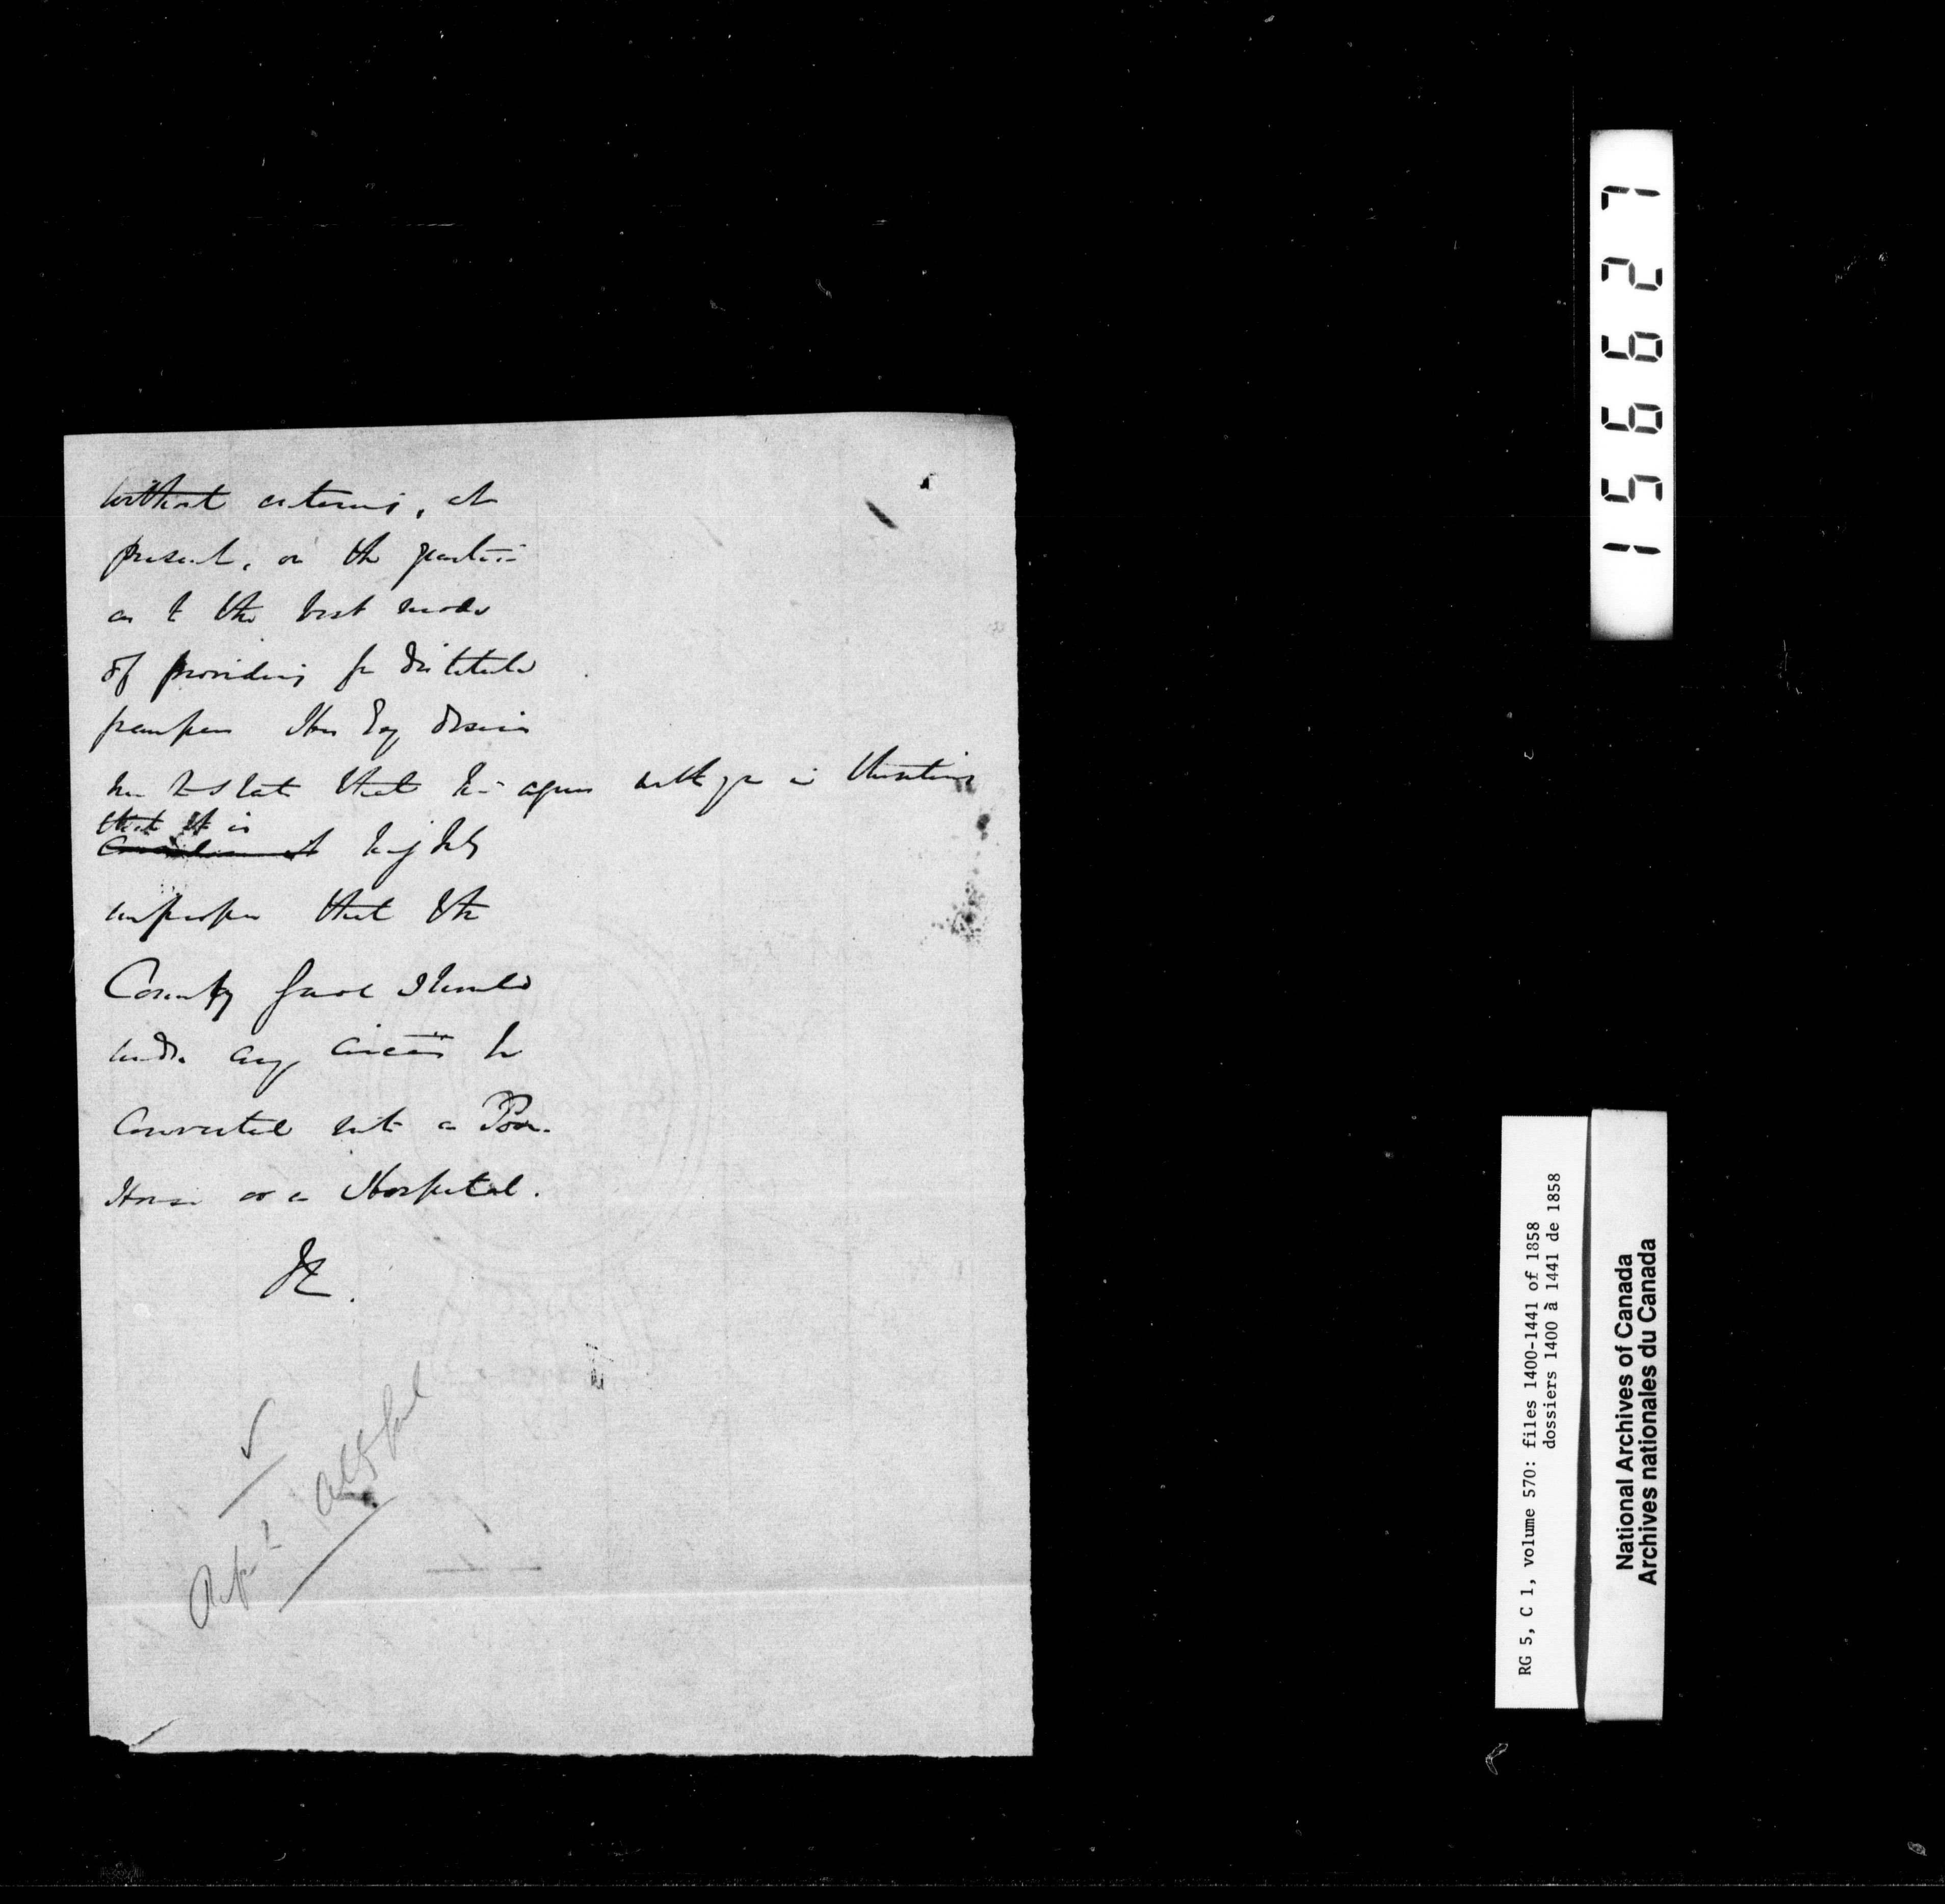 without entering, at
present, on the question
as to the best mode
of providing for destitute
paupers His Exy desires
me to state that he agrees with you in thinking
that it is
highly
improper that the
County Gaol should
under any circes be
converted into a Poor
House or a Hospital.
156627
RG 5, C 1, volume 570: files 1400-1441 of 1858
dossiers 1400 à 1441 de 1858
National Archives of Canada
Archives nationales du Canada